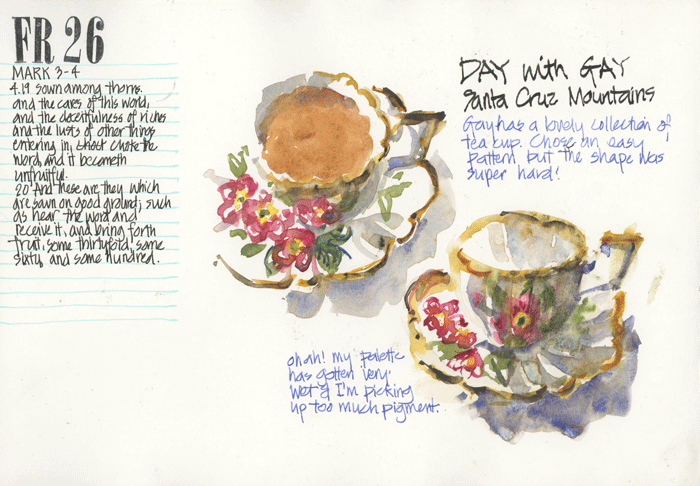 FR 26
MARK 3-4
4.19 sown among thorns.
and the cares of this world,
and the deceitfulness of riches
and the lusts of other things
entering in, choke the
word, and it becometh
unfruitful.
20 And these are they which
are sown on good ground; such
as hear the word and
receive it, and bring forth
fruit, some thirtyfold, some
sixty, and some hundred.
DAY with GAY
Santa Cruz Mountains
Gay has a lovely collection of
tea cup. Chose an easy
pattern but the shape was
super hard!
oh ah! my palette
has gotten very
wet & I'm picking
up too much pigment.